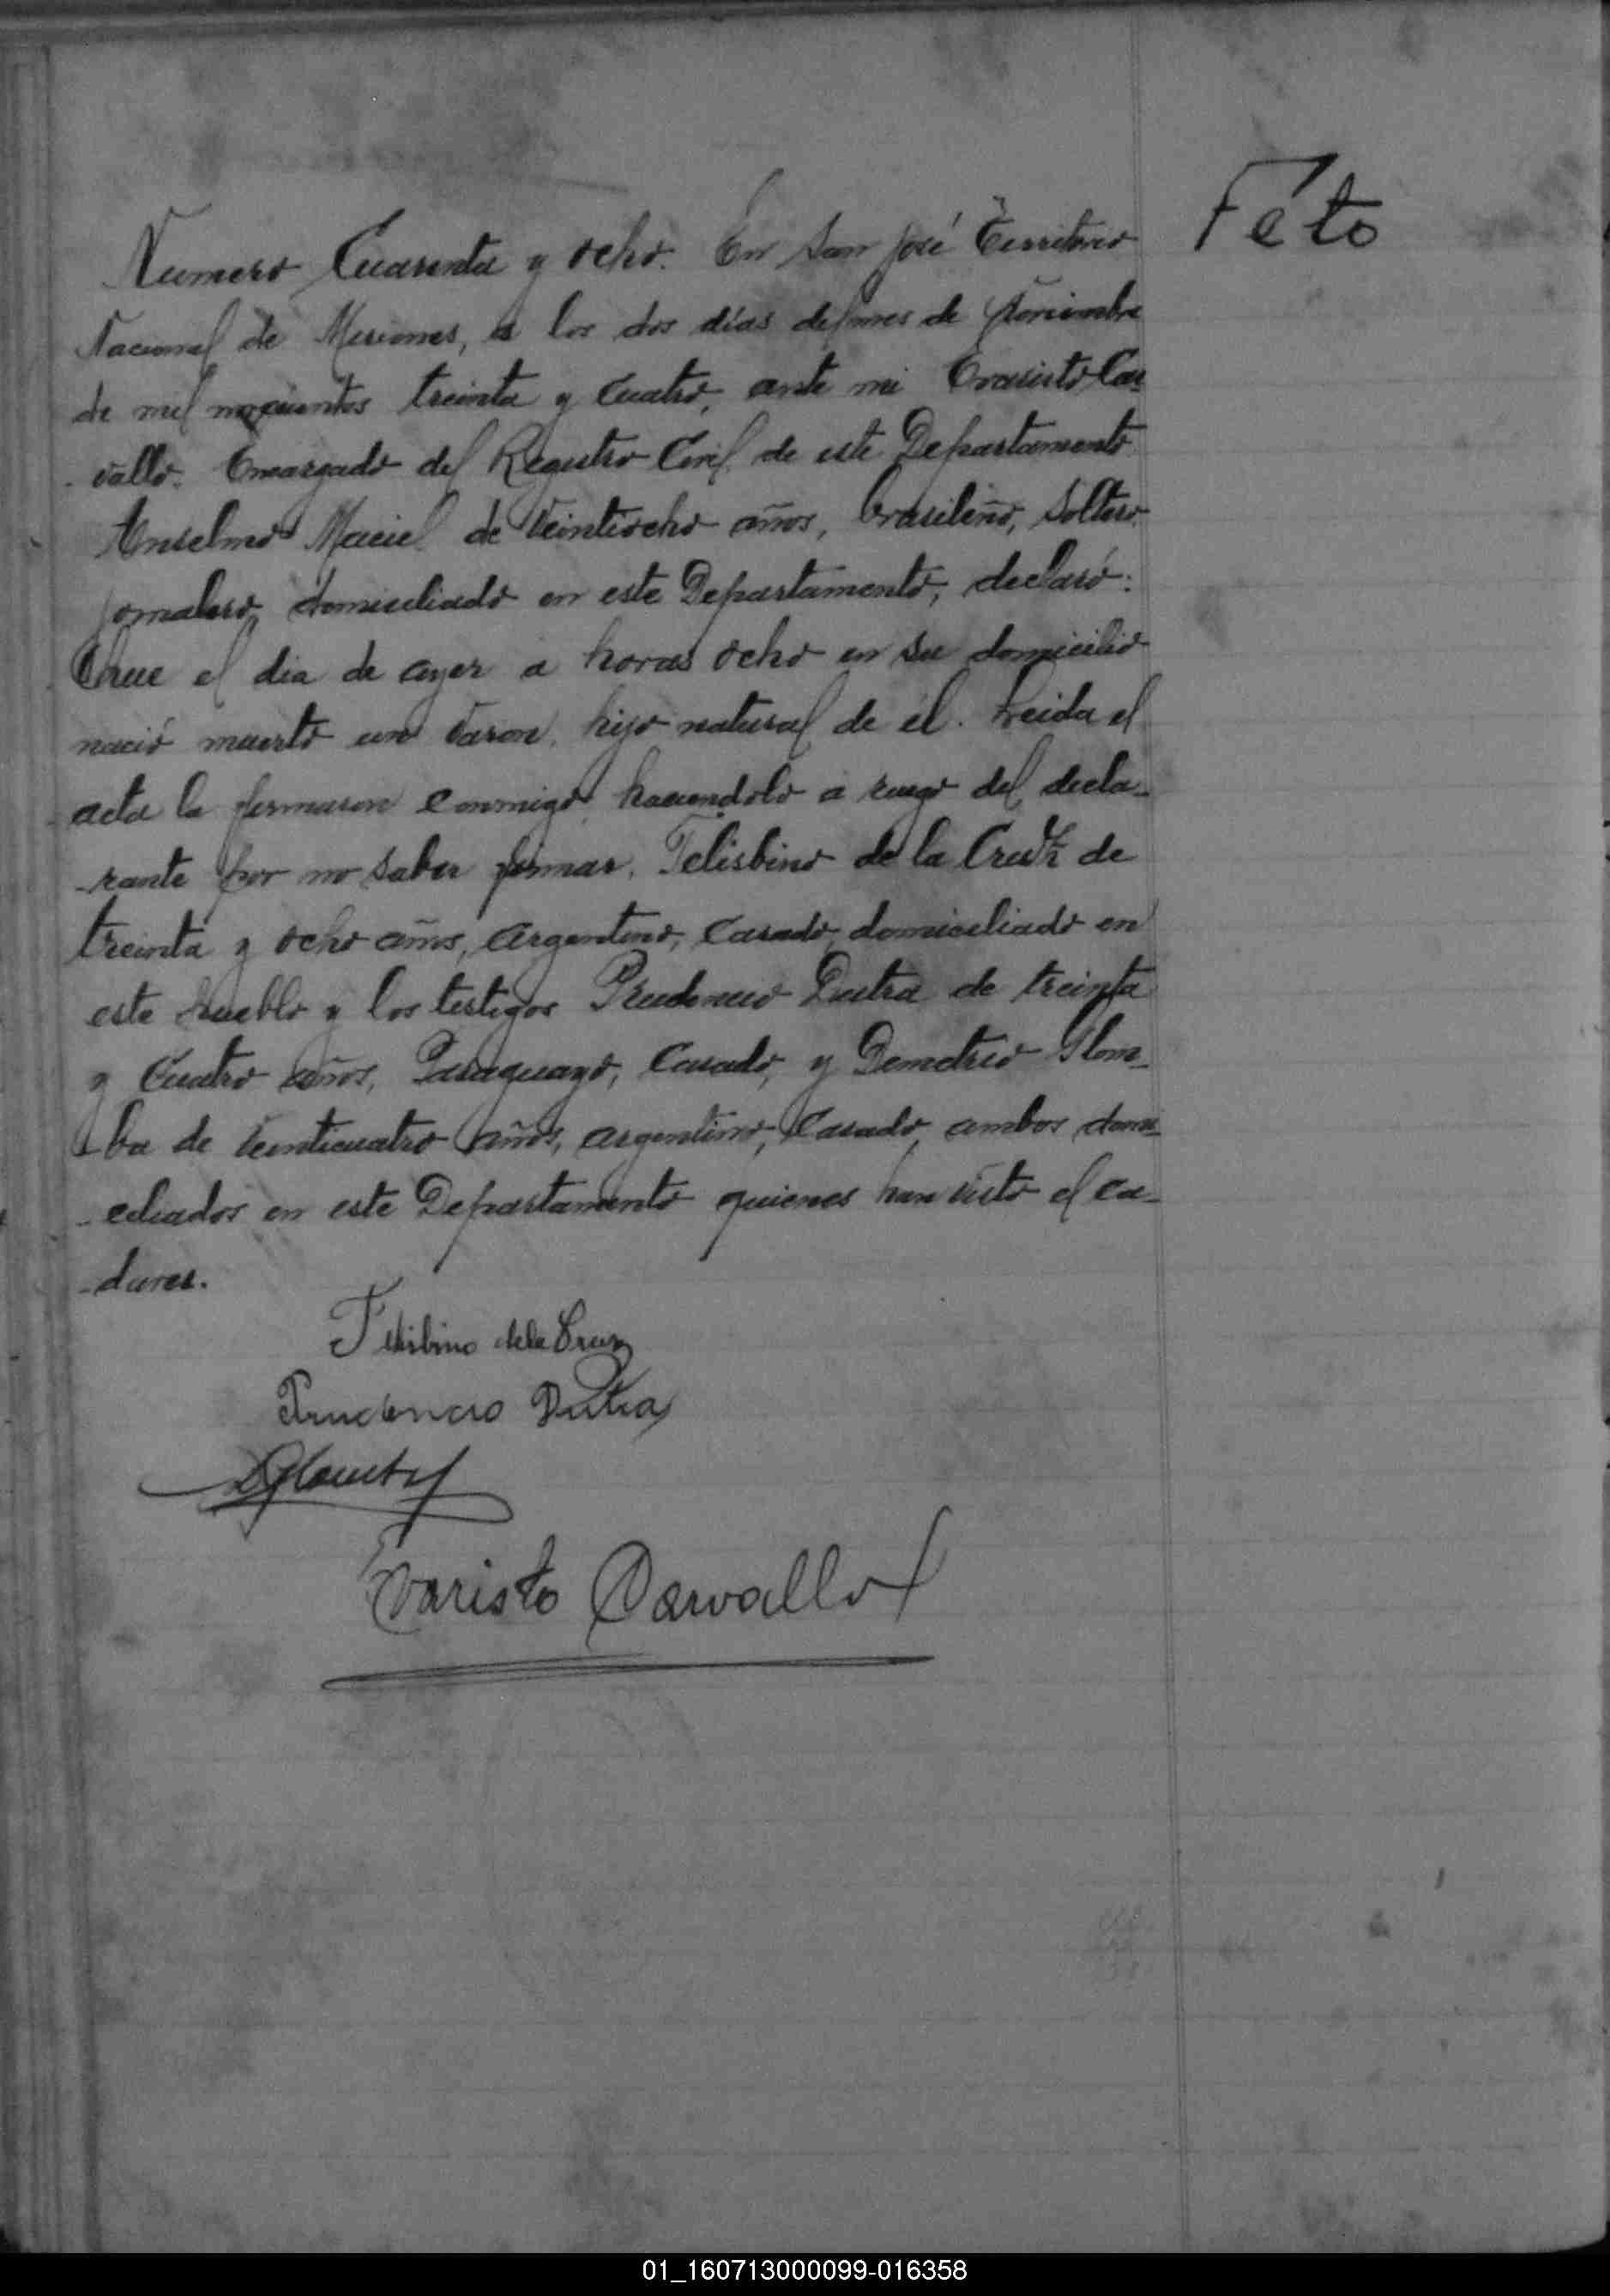 Féto
Numero Cuarenta y ocho. En San José Territorio
Nacional de Misiones, a los dos días del mes de Noviembre
de mil novecientos treinta y cuatro, ante mi Evaristo Car
vallo. Encargado del Registro Civil de este Departamento
Anselmo Maciel de veintiocho años, brasileño, Soltero
jornalero, domiciliado en este Departamento, declaró:
Que el dia de ayer a horas ocho en su domicilio
nació muerto un varon, hijo natural de él. Leida el
acta la firmaron conmigo, haciendolo a ruego del decla-
-rante por no saber firmar, Telisbino de la Cruz de
treinta y ocho años, argentino, casado, domiciliado en
este pueblo y los testigos Prudencio Dutra de treinta
y cuatro años, Paraguayo, Casado, y Demetrio
-ba de veinticuatro años, argentino, Casado, ambos domi-
-ciliados en este Departamento quienes han visto el ca-
-daver.
Telisbino de la Cruz
Prudencio Dutra
Evaristo Carvallo
01_160713000099-016358